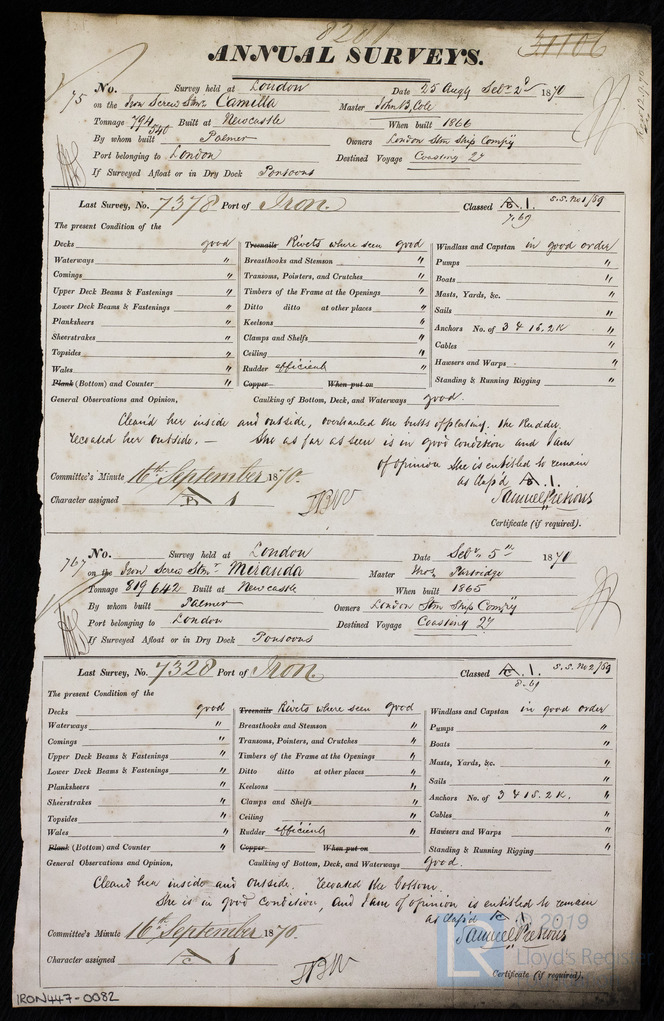 8201
31106
ANNUAL SURVEYS.
75 No. Survey held at London Date 25 Augt Sebr 2d 1870
on the Iron Screw Stmr Camella Master John B. Cole
Tonnage 794 540 Built at Newcastle When built 1866
By whom built Palmer Owners London Stm Ship Compy
Port belonging to London Destined Voyage Coasting 27
If Surveyed Afloat or in Dry Dock Pontoons
Last Survey, No. 7378 Port of Iron. Classed A. 1. S.S. No 1/69
7.69
The present Condition of the
Decks good Treenails Rivets where seen good Windlass and Capstan in good order
Waterways " Breasthooks and Stemson " Pumps "
Comings " Transoms, Pointers, and Crutches " Boats "
Upper Deck Beams & Fastenings " Timbers of the Frame at the Openings " Masts, Yards, &c. "
Lower Deck Beams & Fastenings " Ditto ditto at other places " Sails "
Planksheers " Keelsons " Anchors No. of 3 & 1 S. 2 K "
Sheerstrakes " Clamps and Shelfs " Cables "
Topsides " Ceiling " Hawsers and Warps "
Wales " Rudder efficient Standing & Running Rigging "
Plank (Bottom) and Counter " Copper When put on
General Observations and Opinion, Caulking of Bottom, Deck, and Waterways good.
Clean'd her inside and outside, overhauled the butts of plating, the Rudder.
Recoated her outside. — She as far as seen is in good condition and I am
of opinion She is entitled to remain
as Clas'd A. 1.
Committee's Minute 16th September 1870.
Character assigned A 1
Certificate (if required).
767 No. Survey held at London Date Sebr 5th 1870
on the Iron Screw Stmr Miranda Master Thos Partridge
Tonnage 819 642 Built at Newcastle When built 1865
By whom built Palmer Owners London Stm Ship Compy
Port belonging to London Destined Voyage Coasting 27
If Surveyed Afloat or in Dry Dock Pontoons
Last Survey, No. 7328 Port of Iron. Classed A. 1. S.S. No 2/69
8.69
The present Condition of the
Decks good Treenails Rivets where seen good Windlass and Capstan in good order
Waterways " Breasthooks and Stemson " Pumps "
Comings " Transoms, Pointers, and Crutches " Boats "
Upper Deck Beams & Fastenings " Timbers of the Frame at the Openings " Masts, Yards, &c. "
Lower Deck Beams & Fastenings " Ditto ditto at other places " Sails "
Planksheers " Keelsons " Anchors No. of 3 & 1 S. 2 K. "
Sheerstrakes " Clamps and Shelfs " Cables "
Topsides " Ceiling " Hawsers and Warps "
Wales " Rudder efficient Standing & Running Rigging "
Plank (Bottom) and Counter " Copper When put on
General Observations and Opinion, Caulking of Bottom, Deck, and Waterways good
Cleand her inside and outside. Recoated the bottom.
She is in good condition, and I am of opinion is entitled to remain
as Clas'd A 1.
© 2019
LR Lloyd's Register
Committee's Minute 16th September 1870.
Character assigned A 1
Certificate (if required).
IRON447-0082